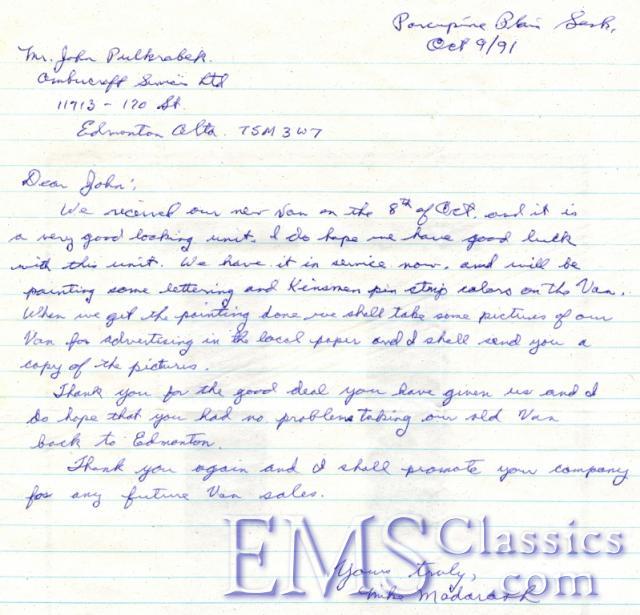 Porcupine Plain Sask,
Oct 9/91
Mr. John Pulkrabek
Ambucraft Services Ltd
11913 - 120 St.
Edmonton Alta. T5M 3W7
Dear John;
We received our new Van on the 8th of Oct. and it is
a very good looking unit. I do hope we have good luck
with this unit. We have it in service now, and will be
painting some lettering and Kinsmen pin strip colors on the Van.
When we get the painting done we shall take some pictures of our
Van for advertising in the local paper and I shall send you a
copy of the pictures.
Thank you for the good deal you have given us and I
do hope that you had no problems taking our old Van
back to Edmonton.
Thank you again and I shall promote your company
for any future Van sales.
Yours truly,
Mike Madarash
EMSClassics.com